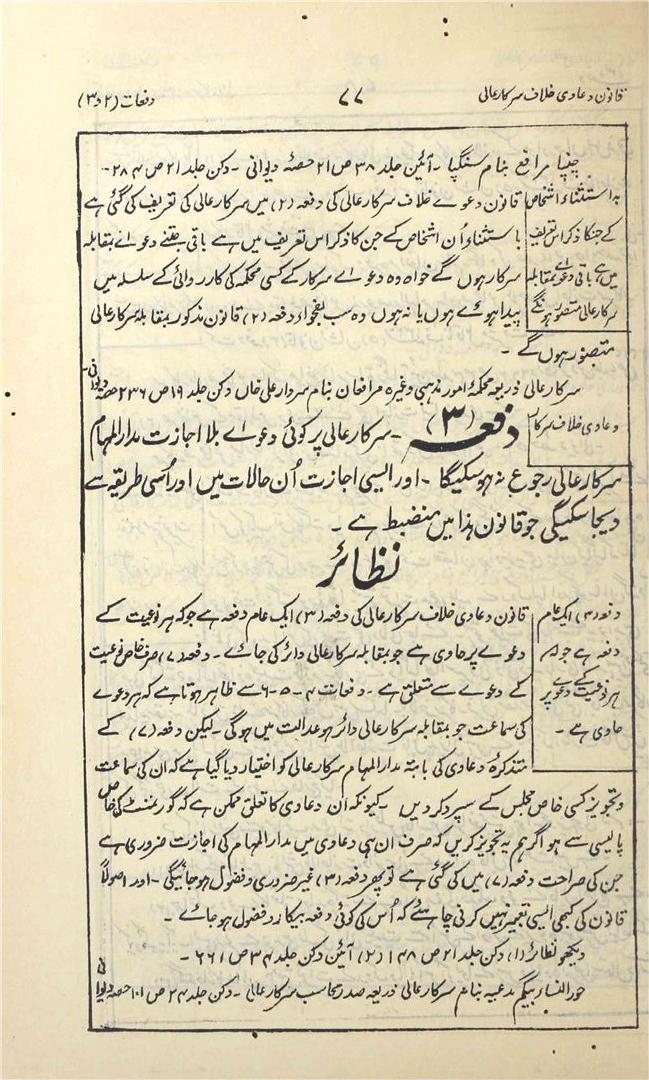 قانون دعاوی خلاف سرکار عالی
۷۷
دفعات (۲ و ۳)
چنپا مرافع بنام سنگپا ۔ آئین جلد ۳۸ ص ۲۱ حصۂ دیوانی ۔ دکن جلد ۲۱ ص ۲۸۴ ۔
بہ استثناء اشخاص
کے جنکا ذکر اس تعریف
میں ہے باقی دعوے بمقابلہ
سرکار عالی متصور ہونگے
قانون دعوے خلاف سرکار عالی کی دفعہ (۲) میں سرکار عالی کی تعریف کی گئی ہے
باستثناء اُن اشخاص کے جن کا ذکر اس تعریف میں ہے باقی جتنے دعوے بمقابلہ
سرکار ہوں گے خواہ وہ دعوے سرکار کے کسی محکمہ کی کارروائی کے سلسلہ میں
پیدا ہوئے ہوں یا نہ ہوں وہ سب بفحواء دفعہ (۲) قانون مذکور بمقابلہ سرکار عالی
متصور ہوں گے ۔
سرکار عالی ذریعہ محکمۂ امور مذہبی وغیرہ مرافعان بنام سردار علی خاں دکن جلد ۱۹ ص ۲۳۶ حصۂ دیوانی ۔
دعاوی خلاف سرکار
دفعہ (۳) ۔ سرکار عالی پر کوئی دعوے بلا اجازت مدار المہام
سرکار عالی رجوع نہ ہو سکیگا ۔ اور ایسی اجازت اُن حالات میں اور اُسی طریقہ سے
دیجا سکیگی جو قانون ہذا میں منضبط ہے ۔
نظائر
دفعہ (۳) ایک عام
دفعہ ہے جو کہ
ہر نوعیت کے دعوے پر
حاوی ہے ۔
قانون دعاوی خلاف سرکار عالی کی دفعہ (۳) ایک عام دفعہ ہے جو کہ ہر نوعیت کے
دعوے پر حاوی ہے جو بمقابلہ سرکار عالی دائر کی جائے ۔ دفعہ (۷) صرف خاص نوعیت
کے دعوے سے متعلق ہے ۔ دفعات ۴ ۔ ۵ ۔ ۶ سے ظاہر ہوتا ہے کہ ہر دعوے
کی سماعت جو بمقابلہ سرکار عالی دائر ہو عدالت میں ہوگی ۔ لیکن دفعہ (۷) کے
متذکرہ دعاوی کی بابتہ مدار المہام سرکار عالی کو اختیار دیا گیا ہے کہ ان کی سماعت
و تجویز کسی خاص مجلس کے سپرد کر دیں ۔ کیونکہ ان دعاوی کا تعلق ممکن ہے کہ گورنمنٹ کی خاص
پالیسی سے ہو اگر ہم یہ تجویز کریں کہ صرف ان ہی دعاوی میں مدار المہام کی اجازت ضروری ہے
جن کی صراحت دفعہ (۷) میں کی گئی ہے تو پھر دفعہ (۳) غیر ضروری و فضول ہو جائیگی ۔ اور اصولاً
قانون کی کبھی ایسی تعبیر نہیں کرنی چاہئے کہ اُس کی کوئی دفعہ بیکار و فضول ہو جائے ۔
دیکھو نظائر (۱) دکن جلد ۲۱ ص ۱۴۸ (۲) آئین دکن جلد ۳۴ ص ۶۶۱ ۔
حور النساء بیگم مدعیہ بنام سرکار عالی ذریعہ صدر محاسب سرکار عالی ۔ دکن جلد ۲۴ ص ۱۰۱ حصۂ دیوانی